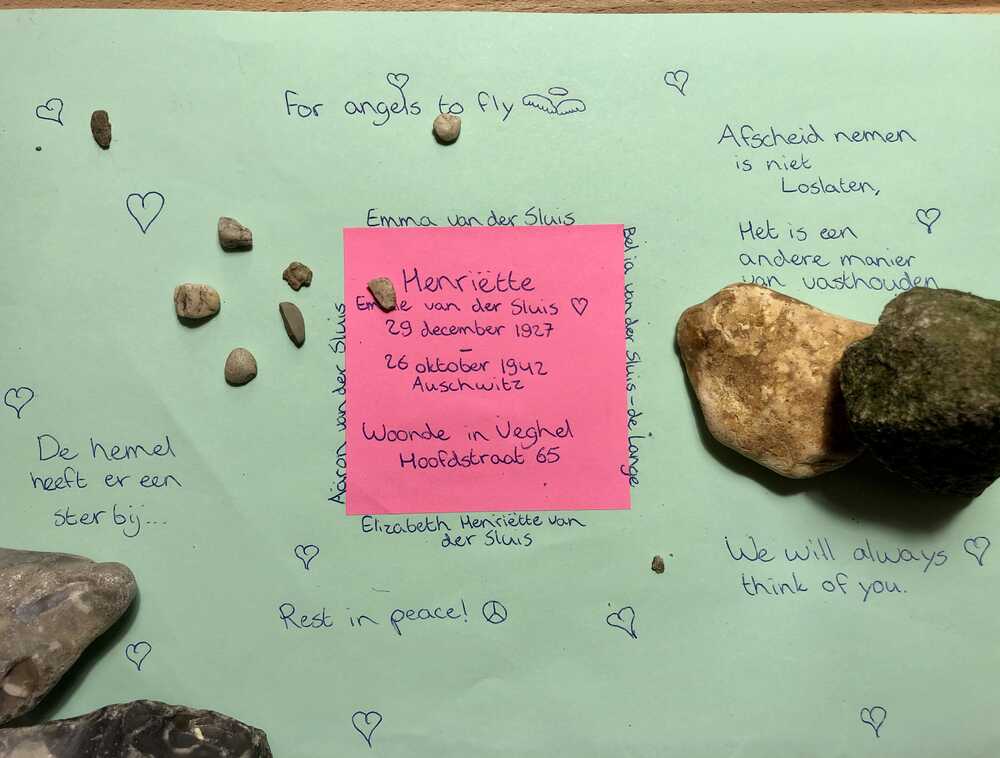 For angels to fly
Afscheid nemen
is niet
Loslaten,
Het is een
andere manier
van vasthouden
Emma van der Sluis
Aäron van der Sluis
Henriëtte
van der Sluis
29 december 1927
–
26 oktober 1942
Auschwitz
Woonde in Veghel
Hoofdstraat 65
Belia van der Sluis-de Lange
Elizabeth Henriëtte van
der Sluis
De hemel
heeft er een
ster bij...
We will always
think of you.
Rest in peace!